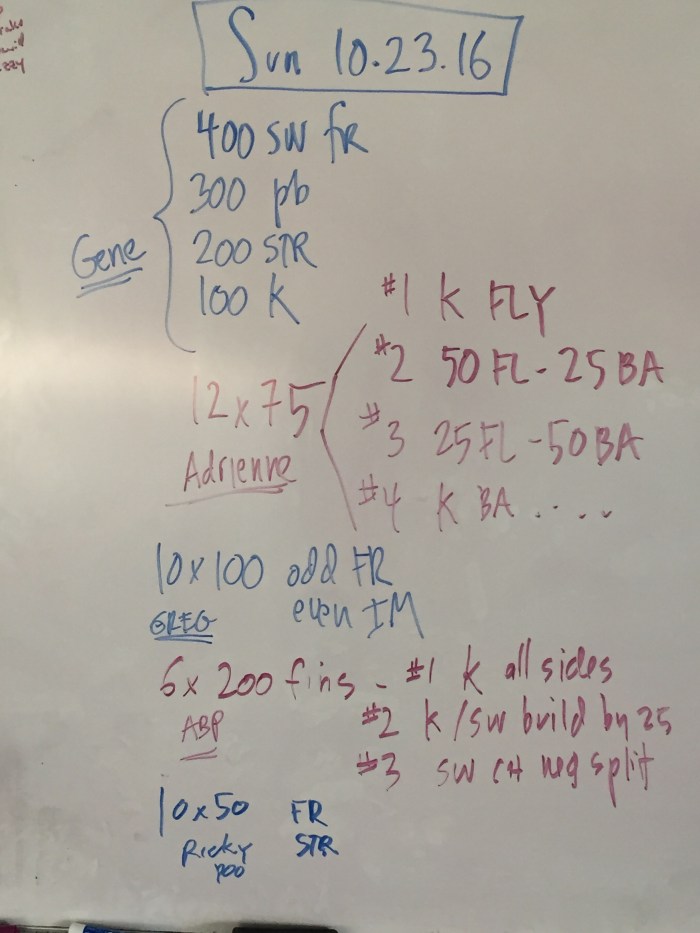 Sun 10.23.16
400 SW fR
300 pb
Gene
200 STR
100 K
#1 K FLY
#2 50 FL - 25 BA
12 x 75
#3 25 FL - 50 BA
Adrienne
#4 K BA . . . .
10 x 100 odd FR
GREG even IM
6 x 200 fins - #1 K all sides
ABP #2 K / SW build by 25
#3 SW CH neg split
10 x 50 FR
Ricky STR
poo